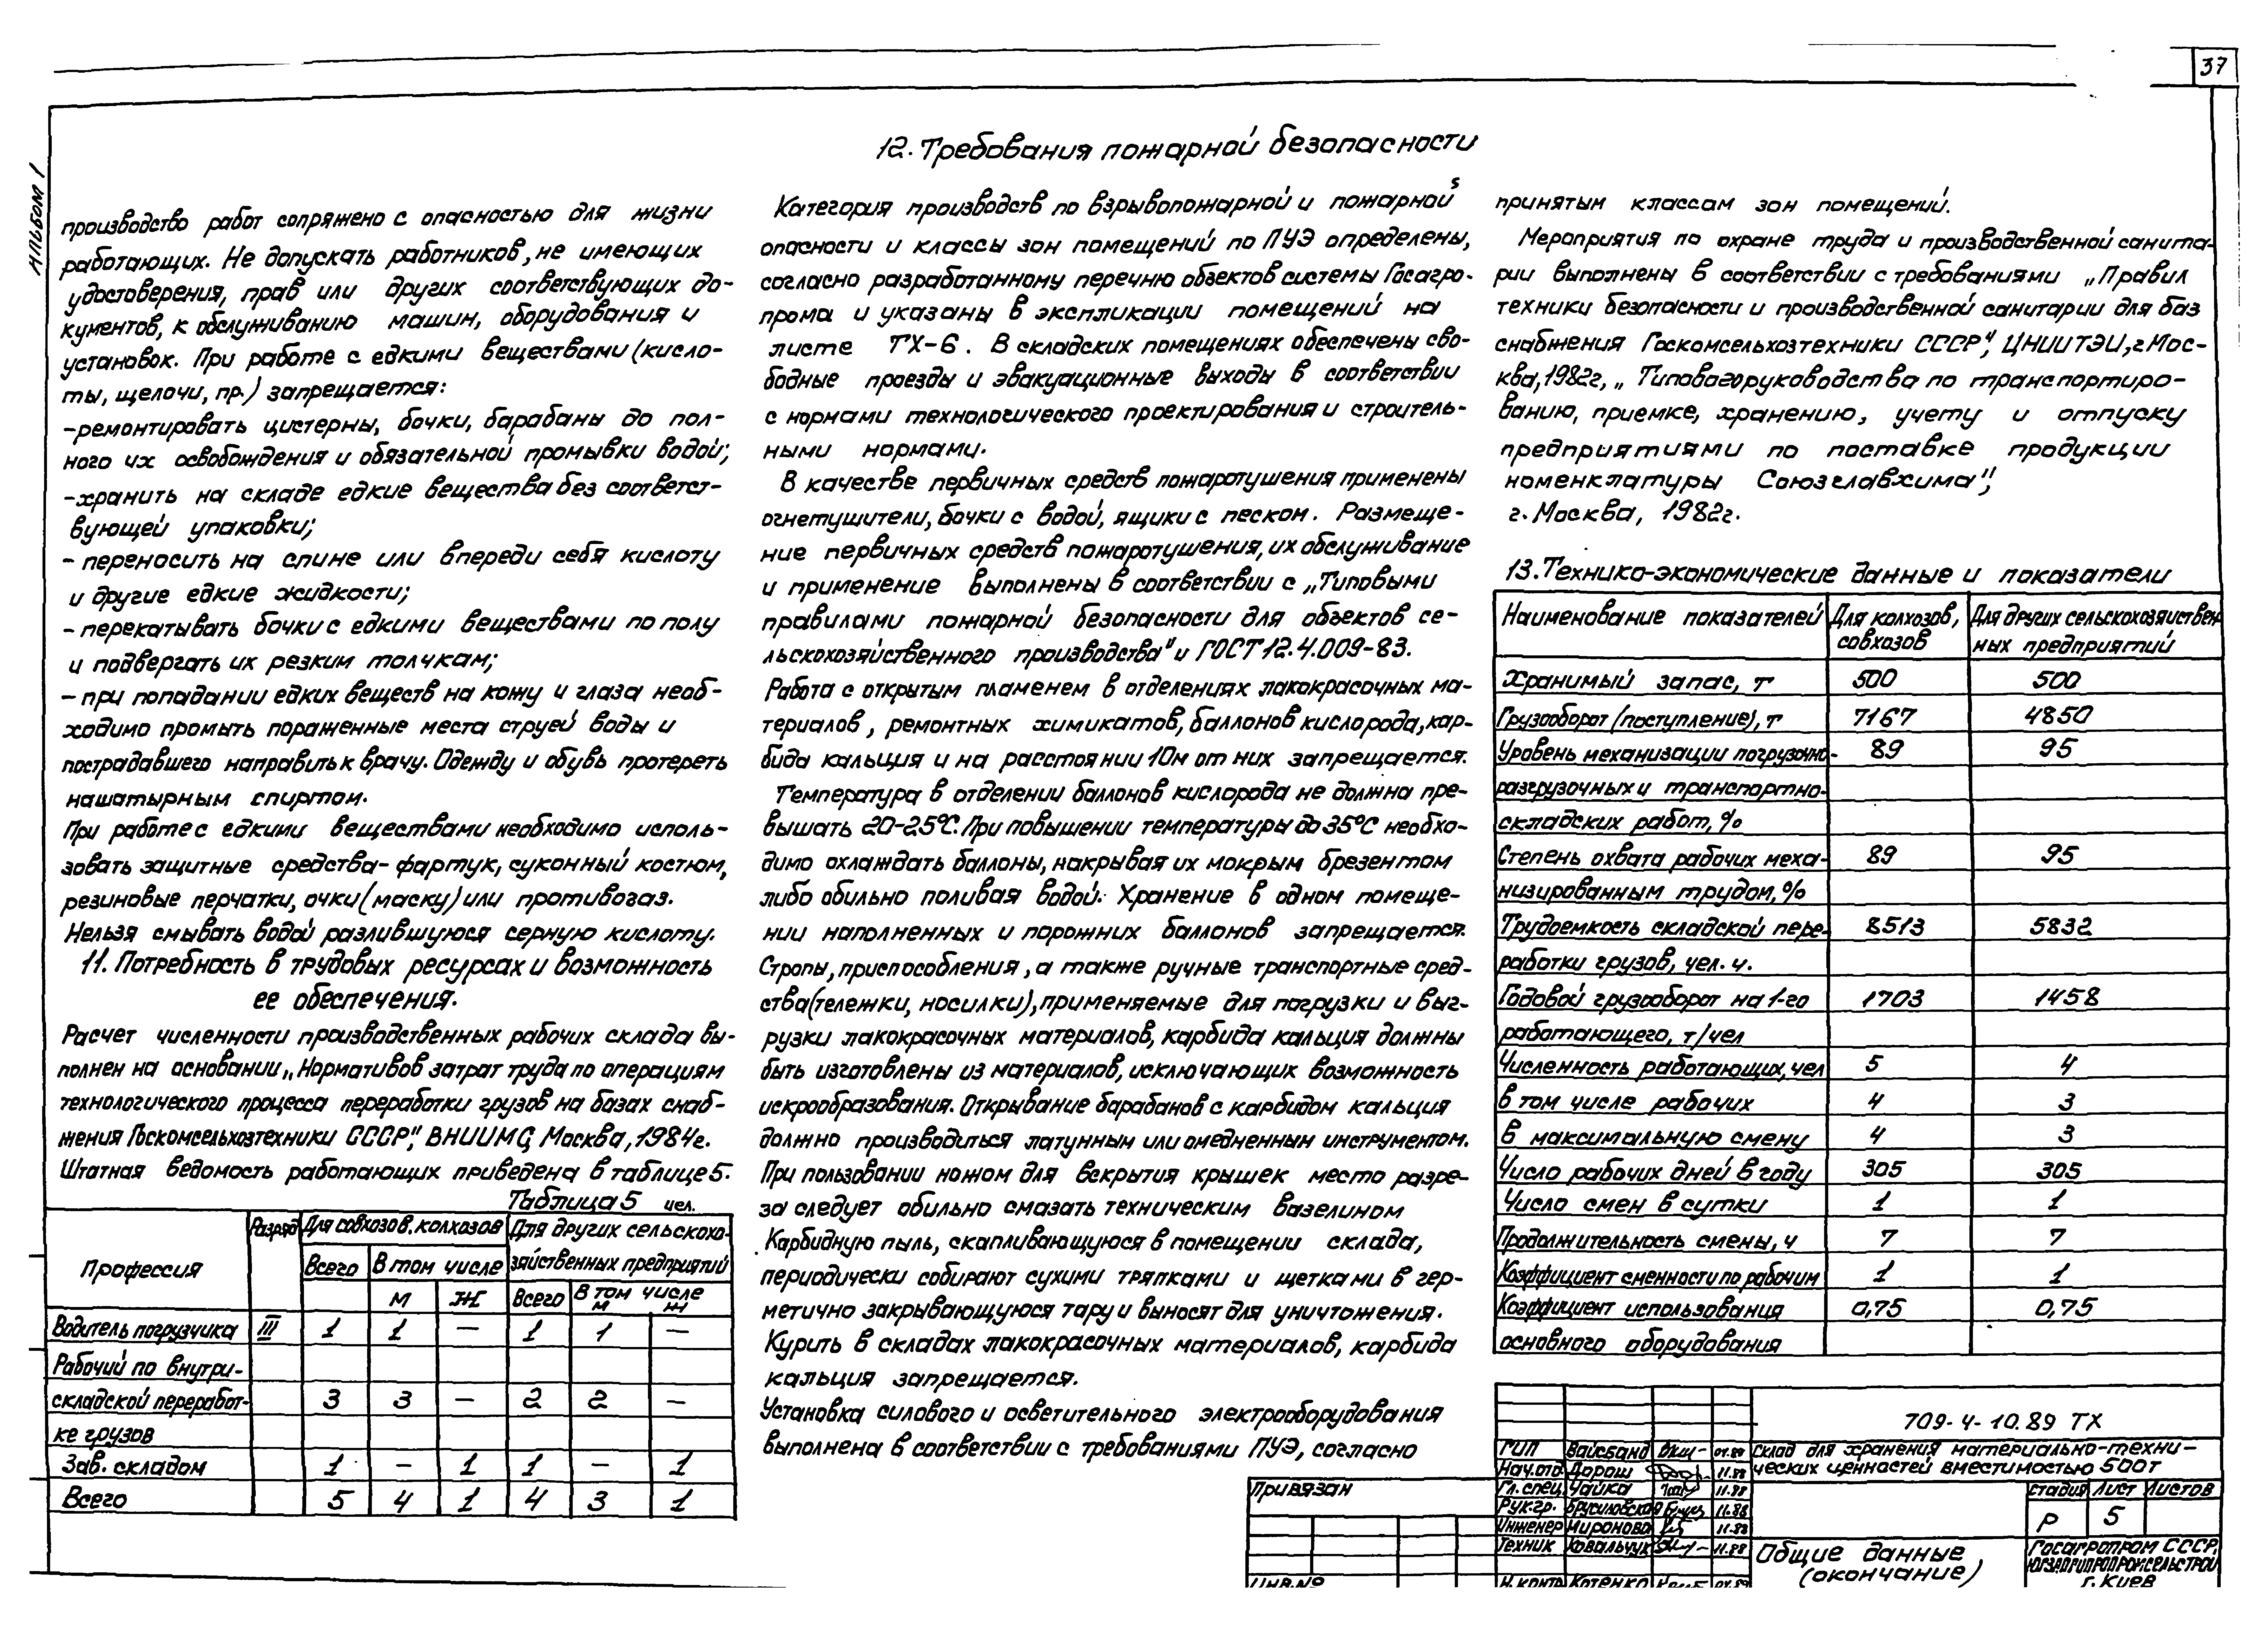 37
Альбом 1
производство работ сопряжено с опасностью для жизни
работающих. Не допускать работников, не имеющих
удостоверения, прав или других соответствующих до-
кументов, к обслуживанию машин, оборудования и
установок. При работе с едкими веществами (кисло-
ты, щелочи, пр.) запрещается:
-ремонтировать цистерны, бочки, барабаны до пол-
ного их освобождения и обязательной промывки водой;
-хранить на складе едкие вещества без соответст-
вующей упаковки;
- переносить на спине или впереди себя кислоту
и другие едкие жидкости;
- перекатывать бочки с едкими веществами по полу
и подвергать их резким толчкам;
- при попадании едких веществ на кожу и глаза необ-
ходимо промыть пораженные места струей воды и
пострадавшего направить к врачу. Одежду и обувь протереть
нашатырным спиртом.
При работе с едкими веществами необходимо исполь-
зовать защитные средства- фартук, суконный костюм,
резиновые перчатки, очки (маску) или противогаз.
Нельзя смывать водой разлившуюся серную кислоту.
11. Потребность в трудовых ресурсах и возможность
ее обеспечения.
Расчет численности производственных рабочих склада вы-
полнен на основании „Нормативов затрат труда по операциям
технологического процесса переработки грузов на базах снаб-
жения Госкомсельхозтехники СССР", ВНИИМС, Москва, 1984г.
Штатная ведомость работающих приведена в таблице 5.
Таблица 5 чел.
Профессия Разряд Для совхозов, колхозов Для других сельскохо-
зяйственных предприятий
Всего В том числе Всего В том числе
М Ж М Ж
Водитель погрузчика III 1 1 — 1 1 —
Рабочий по внутри-
складской переработ- 3 3 — 2 2 —
ке грузов
Зав. складом 1 — 1 1 — 1
Всего 5 4 1 4 3 1
12. Требования пожарной безопасности
Категория производств по взрывопожарной и пожарной
опасности и классы зон помещений по ПУЭ определены,
согласно разработанному перечню объектов системы Госагро-
прома и указаны в экспликации помещений на
листе ТХ-6. В складских помещениях обеспечены сво-
бодные проезды и эвакуационные выходы в соответствии
с нормами технологического проектирования и строитель-
ными нормами.
В качестве первичных средств пожаротушения применены
огнетушители, бочки с водой, ящики с песком. Размеще-
ние первичных средств пожаротушения, их обслуживание
и применение выполнены в соответствии с „Типовыми
правилами пожарной безопасности для объектов се-
льскохозяйственного производства" и ГОСТ 12.4.009-83.
Работа с открытым пламенем в отделениях лакокрасочных ма-
териалов, ремонтных химикатов, баллонов кислорода, кар-
бида кальция и на расстоянии 10м от них запрещается.
Температура в отделении баллонов кислорода не должна пре-
вышать 20-25°С. При повышении температуры до 35°С необхо-
димо охлаждать баллоны, накрывая их мокрым брезентом
либо обильно поливая водой. Хранение в одном помеще-
нии наполненных и порожних баллонов запрещается.
Стропы, приспособления, а также ручные транспортные сред-
ства (тележки, носилки), применяемые для погрузки и выг-
рузки лакокрасочных материалов, карбида кальция должны
быть изготовлены из материалов, исключающих возможность
искрообразования. Открывание барабанов с карбидом кальция
должно производиться латунным или омедненным инструментом.
При пользовании ножом для вскрытия крышек место разре-
за следует обильно смазать техническим вазелином
Карбидную пыль, скапливающуюся в помещении склада,
периодически собирают сухими тряпками и щетками в гер-
метично закрывающуюся тару и выносят для уничтожения.
Курить в складах лакокрасочных материалов, карбида
кальция запрещается.
Установка силового и осветительного электрооборудования
выполнена в соответствии с требованиями ПУЭ, согласно
принятым классам зон помещений.
Мероприятия по охране труда и производственной санита-
рии выполнены в соответствии с требованиями „Правил
техники безопасности и производственной санитарии для баз
снабжения Госкомсельхозтехники СССР", ЦНИИТЭИ, г. Мос-
ква, 1982г, „Типового руководства по транспортиро-
ванию, приемке, хранению, учету и отпуску
предприятиями по поставке продукции
номенклатуры Союзглавхима",
г. Москва, 1982г.
13. Технико-экономические данные и показатели
Наименование показателей Для колхозов, Для других сельскохозяйствен-
совхозов ных предприятий
Хранимый запас, т 500 500
Грузооборот (поступление), т 7167 4850
Уровень механизации погрузочно- 89 95
разгрузочных и транспортно-
складских работ, %
Степень охвата рабочих меха- 89 95
низированным трудом, %
Трудоемкость складской пере- 8513 5832
работки грузов, чел. ч.
Годовой грузооборот на 1-го 1703 1458
работающего, т/чел
Численность работающих, чел 5 4
в том числе рабочих 4 3
в максимальную смену 4 3
Число рабочих дней в году 305 305
Число смен в сутки 1 1
Продолжительность смены, ч 7 7
Коэффициент сменности по рабочим 1 1
Коэффициент использования 0,75 0,75
основного оборудования
709-4-10.89 ТХ
ГИП Вайсбанд 01.89
Нач.отд Дорош 11.88
Гл. спец. Чайка 11.88
Рук.гр. Брусиловская 11.88
Инженер Миронова 11.88
Техник Ковальчук 11.88
Н.контр Котенко 01.89
Склад для хранения материально-техни-
ческих ценностей вместимостью 500т
Стадия Лист Листов
Р 5
Общие данные
(окончание)
Госагропром СССР,
г. Киев
Привязан
Инв.№